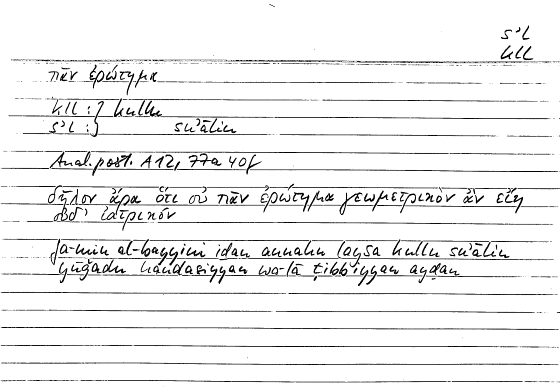 s'l
kll
πᾶν ἐρώτημα
kll : } kullu
s'l : } su'ālin
Anal. post. A 12, 77a 40f
δῆλον ἄρα ὅτι οὐ πᾶν ἐρώτημα γεωμετρικὸν ἂν εἴη
οὐδ' ἰατρικόν
fa-min al-bayyini iḏan annahu laysa kullu su'ālin
yūǧadu handasiyyan wa-lā ṭibbiyyan ayḍan